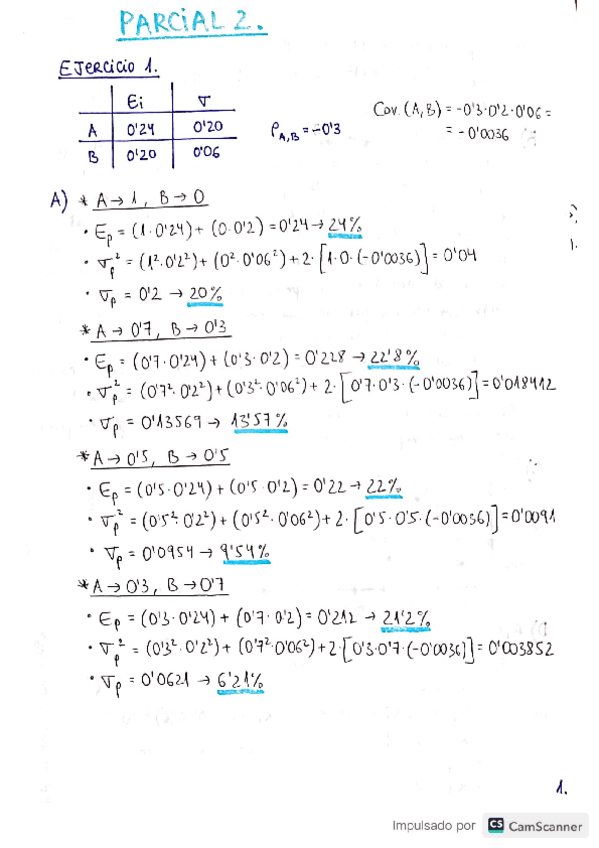 PARCIAL 2.
EJERCICIO 1.
Ei σ
A 0'24 0'20
B 0'20 0'06
ρA,B = -0'3
Cov. (A,B) = -0'3·0'2·0'06 =
= -0'0036
A) * A → 1, B → 0
• Ep = (1·0'24) + (0·0'2) = 0'24 → 24%
• σp² = (1²·0'2²) + (0²·0'06²) + 2·[1·0·(-0'0036)] = 0'04
• σp = 0'2 → 20%
* A → 0'7, B → 0'3
• Ep = (0'7·0'24) + (0'3·0'2) = 0'228 → 22'8%
• σp² = (0'7²·0'2²) + (0'3²·0'06²) + 2·[0'7·0'3·(-0'0036)] = 0'018412
• σp = 0'13569 → 13'57%
* A → 0'5, B → 0'5
• Ep = (0'5·0'24) + (0'5·0'2) = 0'22 → 22%
• σp² = (0'5²·0'2²) + (0'5²·0'06²) + 2·[0'5·0'5·(-0'0036)] = 0'0091
• σp = 0'0954 → 9'54%
* A → 0'3, B → 0'7
• Ep = (0'3·0'24) + (0'7·0'2) = 0'212 → 21'2%
• σp² = (0'3²·0'2²) + (0'7²·0'06²) + 2·[0'3·0'7·(-0'0036)] = 0'003852
• σp = 0'0621 → 6'21%
1.
Impulsado por CS CamScanner